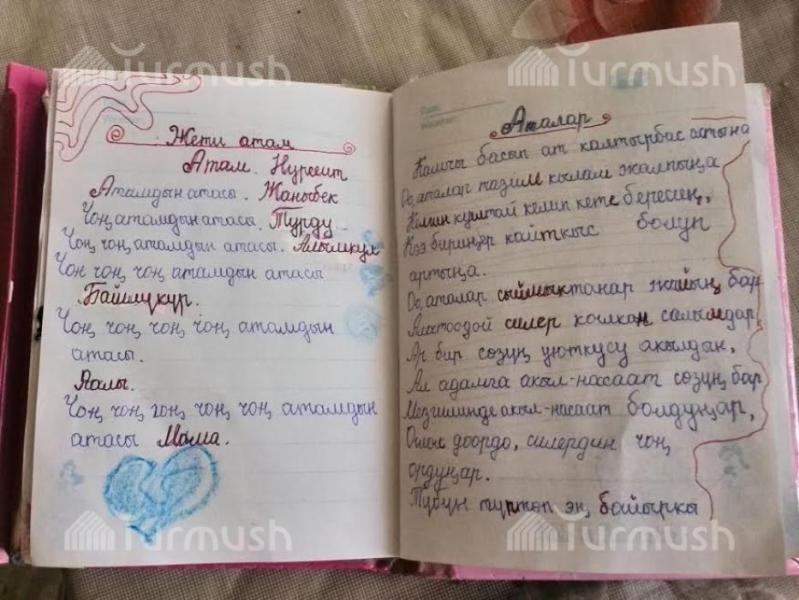 Turmush
Turmush
Жети атам
Атам. Нурсеит
Атамдын атасы. Жаныбек
Чоң атамдын атасы. Турду
Чоң чоң атамдын атасы. Алымкул
Чоң чоң чоң атамдын атасы
Байшүкүр.
Чоң чоң чоң чоң атамдын
атасы.
Аалы.
Чоң чоң чоң чоң чоң атамдын
атасы Мама.
Turmush
Date:
Weather:
Аталар
басып ат калтырбас астына
Оо, аталар тазим кылам жалпыңа
келип кете бересиң,
Кээ бириңер кайткыс болуп
артыңа.
Оо, аталар сыймыктанар жайың бар
Алатоодой силер койкан салымдар,
Ар бир сөзүң уюткусу акылдын,
Ал адамга акыл-насаат сөзүң бар
Мезгилинде акыл-насаат болдуңар,
доордо, силердин чоң
ордуңар.
Түбүн түптөп эң байыркы
Turmush